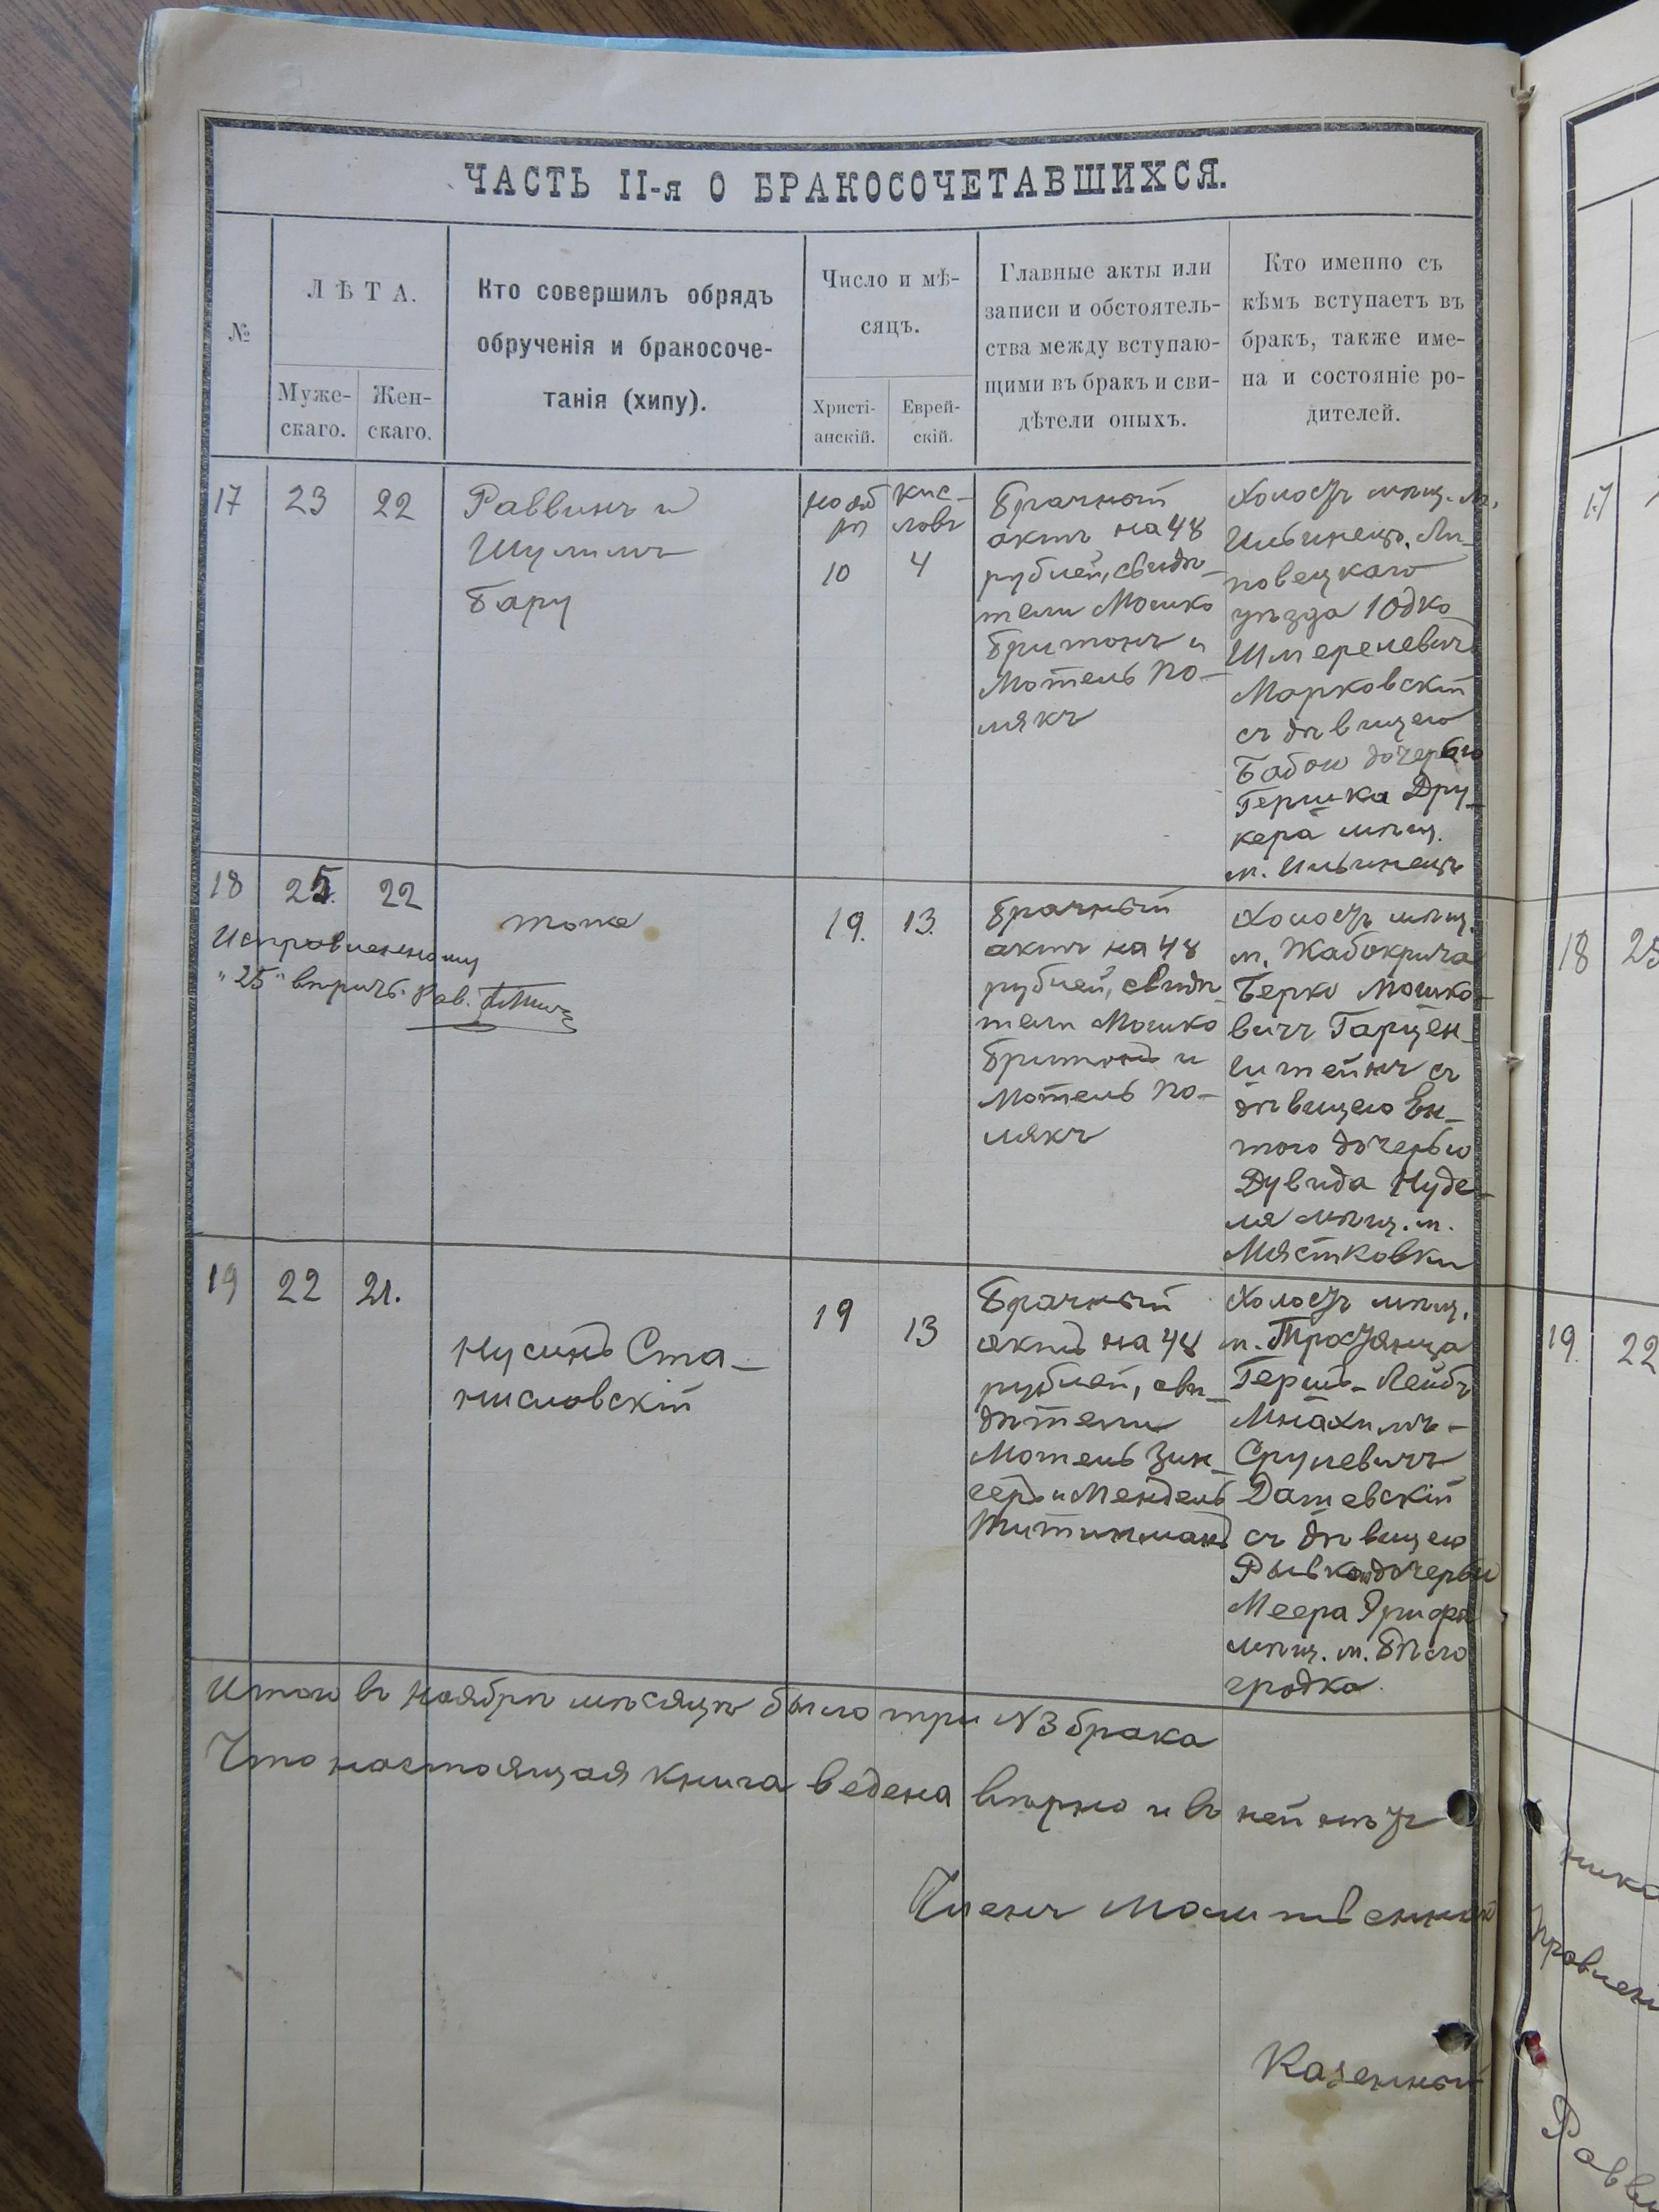 ЧАСТЬ II-я О БРАКОСОЧЕТАВШИХСЯ.
№
ЛѢТА.
Муже-
скаго.
Жен-
скаго.
Кто совершилъ обрядъ
обрученія и бракосоче-
танія (хипу).
Число и мѣ-
сяцъ.
Христі-
анскій.
Еврей-
скій.
Главные акты или
записи и обстоятель-
ства между вступаю-
щими въ бракъ и сви-
дѣтели оныхъ.
Кто именно съ
кѣмъ вступаетъ въ
бракъ, также име-
на и состояніе ро-
дителей.
17
23
22
Раввинъ и
Шулимъ
Бару
нояб
ря
10
кис-
ловъ
4
Брачный
актъ на 48
рублей, свидѣ-
тели Мошко
Бритонъ и
Мотель По-
лякъ
Холостъ мѣщ. м.
Ильинецъ, Ли-
повецкаго
уѣзда Юдко
Шмерелевичъ
Марковскій
съ дѣвицею
Бабою дочерью
Гершка Дру-
кера мѣщ.
м. Ильинецъ
18
25.
22
Исправленному
"25" вѣрить. Рав.
тоже
19.
13.
Брачный
актъ на 48
рублей, свидѣ-
тели Мошко
Бритонъ и
Мотель По-
лякъ
Холостъ мѣщ.
м. Жабокрича
Берко Мошко-
вичъ Гарцен-
штейнъ съ
дѣвицею Ен-
тою дочерью
Дувида Нуде-
ля мѣщ. м.
Мястковки
19
22
21.
Нусинъ Ста-
нисловскій
19
13
Брачный
актъ на 48
рублей, сви-
дѣтели
Мотель Зин-
геръ и Мендель
Холостъ мѣщ.
м. Тростянца
Гершъ-Лейбъ
Мнахимъ-
Срулевичъ
Дашевскій
съ дѣвицею
Рывкою дочерью
Меера
мѣщ. м. Бѣло
гродка.
Итого въ ноябрѣ мѣсяцѣ было три №3 брака
Что настоящая книга ведена вѣрно и въ ней нѣтъ
Членъ Молитвенной
Казенный
17
18
25
19.
22
Равви